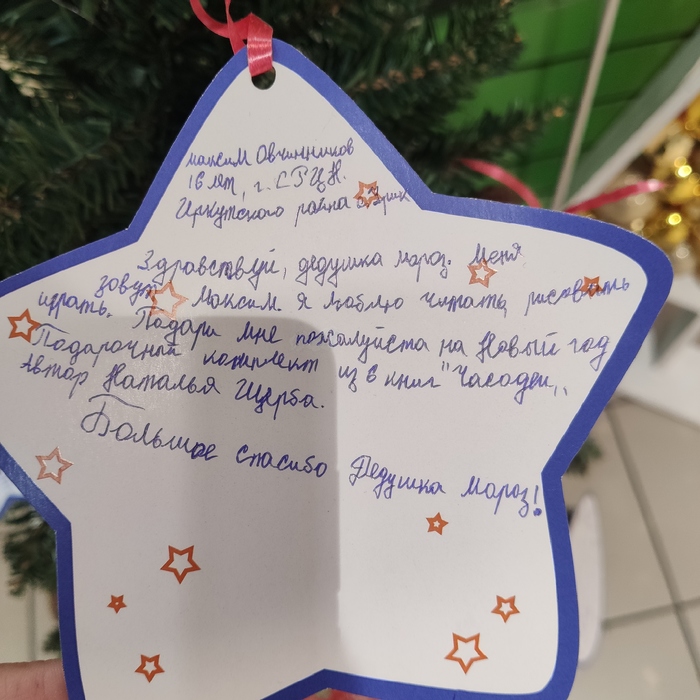 максим Овчинников
16 лет, г. СРЦН.
Иркутского района
Здравствуй, дедушка мороз. Меня
зовут Максим. Я люблю читать, рисовать
играть. Подари мне пожалуйста на Новый год
Подарочный комплект из 6 книг "Часодеи,,
Автор Наталья Щерба.
Большое спасибо Дедушка мороз!